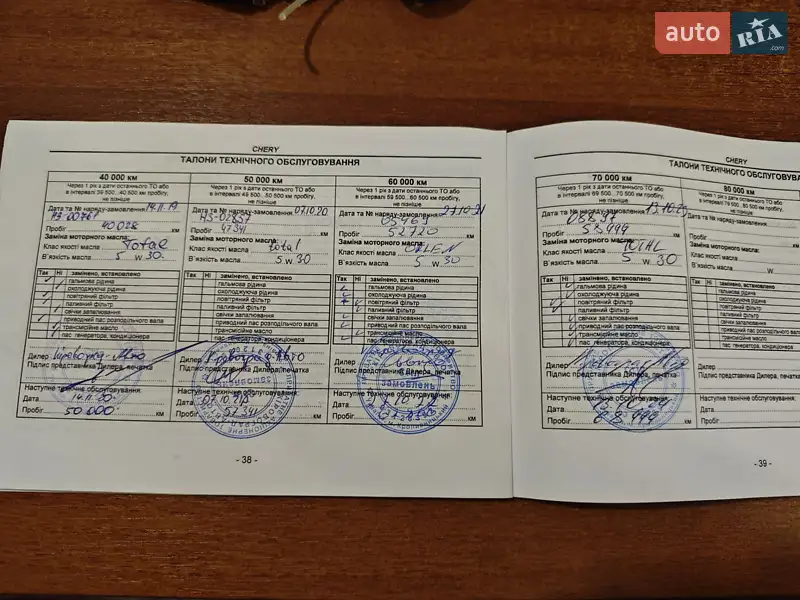 auto RIA.com
CHERY
ТАЛОНИ ТЕХНІЧНОГО ОБСЛУГОВУВАННЯ
40 000 км
Через 1 рік з дати останнього ТО або
в інтервалі 39 500...40 500 км пробігу,
не пізніше
Дата та № наряду-замовлення 14.11.19
АЗ-00761
Пробіг 40 028 км
Заміна моторного масла:
Клас якості масла Total
В'язкість масла 5 w 30
Так Ні замінено, встановлено
гальмова рідина
охолоджуюча рідина
повітряний фільтр
паливний фільтр
свічки запалювання
приводний пас розподільчого вала
трансмісійне масло
пас генератора, кондиціонера
Дилер
Підпис представника Дилера, печатка
Наступне технічне обслуговування:
Дата 14.11.20
Пробіг 50 000 км
50 000 км
Через 1 рік з дати останнього ТО або
в інтервалі 49 500...50 500 км пробігу,
не пізніше
Дата та № наряду-замовлення 07.10.20
Пробіг 47341 км
Заміна моторного масла:
Клас якості масла total
В'язкість масла 5 w 30
Так Ні замінено, встановлено
гальмова рідина
охолоджуюча рідина
повітряний фільтр
паливний фільтр
свічки запалювання
приводний пас розподільчого вала
трансмісійне масло
пас генератора, кондиціонера
Дилер
Підпис представника Дилера, печатка
Наступне технічне обслуговування:
Дата
Пробіг 57341 км
60 000 км
Через 1 рік з дати останнього ТО або
в інтервалі 59 500...60 500 км пробігу,
не пізніше
Дата та № наряду-замовлення 27.10.21
05469
Пробіг 52720 км
Заміна моторного масла:
Клас якості масла ORLEN
В'язкість масла 5 w 30
Так Ні замінено, встановлено
гальмова рідина
охолоджуюча рідина
повітряний фільтр
паливний фільтр
свічки запалювання
приводний пас розподільчого вала
трансмісійне масло
пас генератора, кондиціонера
Дилер
Підпис представника Дилера, печатка
замовлень
Наступне технічне обслуговування:
Дата
Пробіг км
- 38 -
CHERY
ТАЛОНИ ТЕХНІЧНОГО ОБСЛУГОВУВА
70 000 км
Через 1 рік з дати останнього ТО або
в інтервалі 69 500...70 500 км пробігу,
не пізніше
Дата та № наряду-замовлення
Пробіг 58999 км
Заміна моторного масла:
Клас якості масла TOTAL
В'язкість масла 5 w 30
Так Ні замінено, встановлено
гальмова рідина
охолоджуюча рідина
повітряний фільтр
паливний фільтр
свічки запалювання
приводний пас розподільчого вала
трансмісійне масло
пас генератора, кондиціонера
Дилер
Підпис представника Дилера, печатка
Наступне технічне обслуговування:
Дата
Пробіг 68 999 км
80 000 км
Через 1 рік з дати останнього
в інтервалі 79 500...
не пізніше
Дата та № наряду-замовлення
Пробіг
Заміна моторного масла:
Клас якості масла
В'язкість масла w
Так Ні замінено, встановл
гальмова рідина
охолоджуюча рідина
повітряний фільтр
паливний фільтр
свічки запалювання
приводний пас розпод
трансмісійне масло
пас генератора, конди
Дилер
Підпис представника Дилера, п
Наступне технічне обслугов
Дата
Пробіг
- 39 -